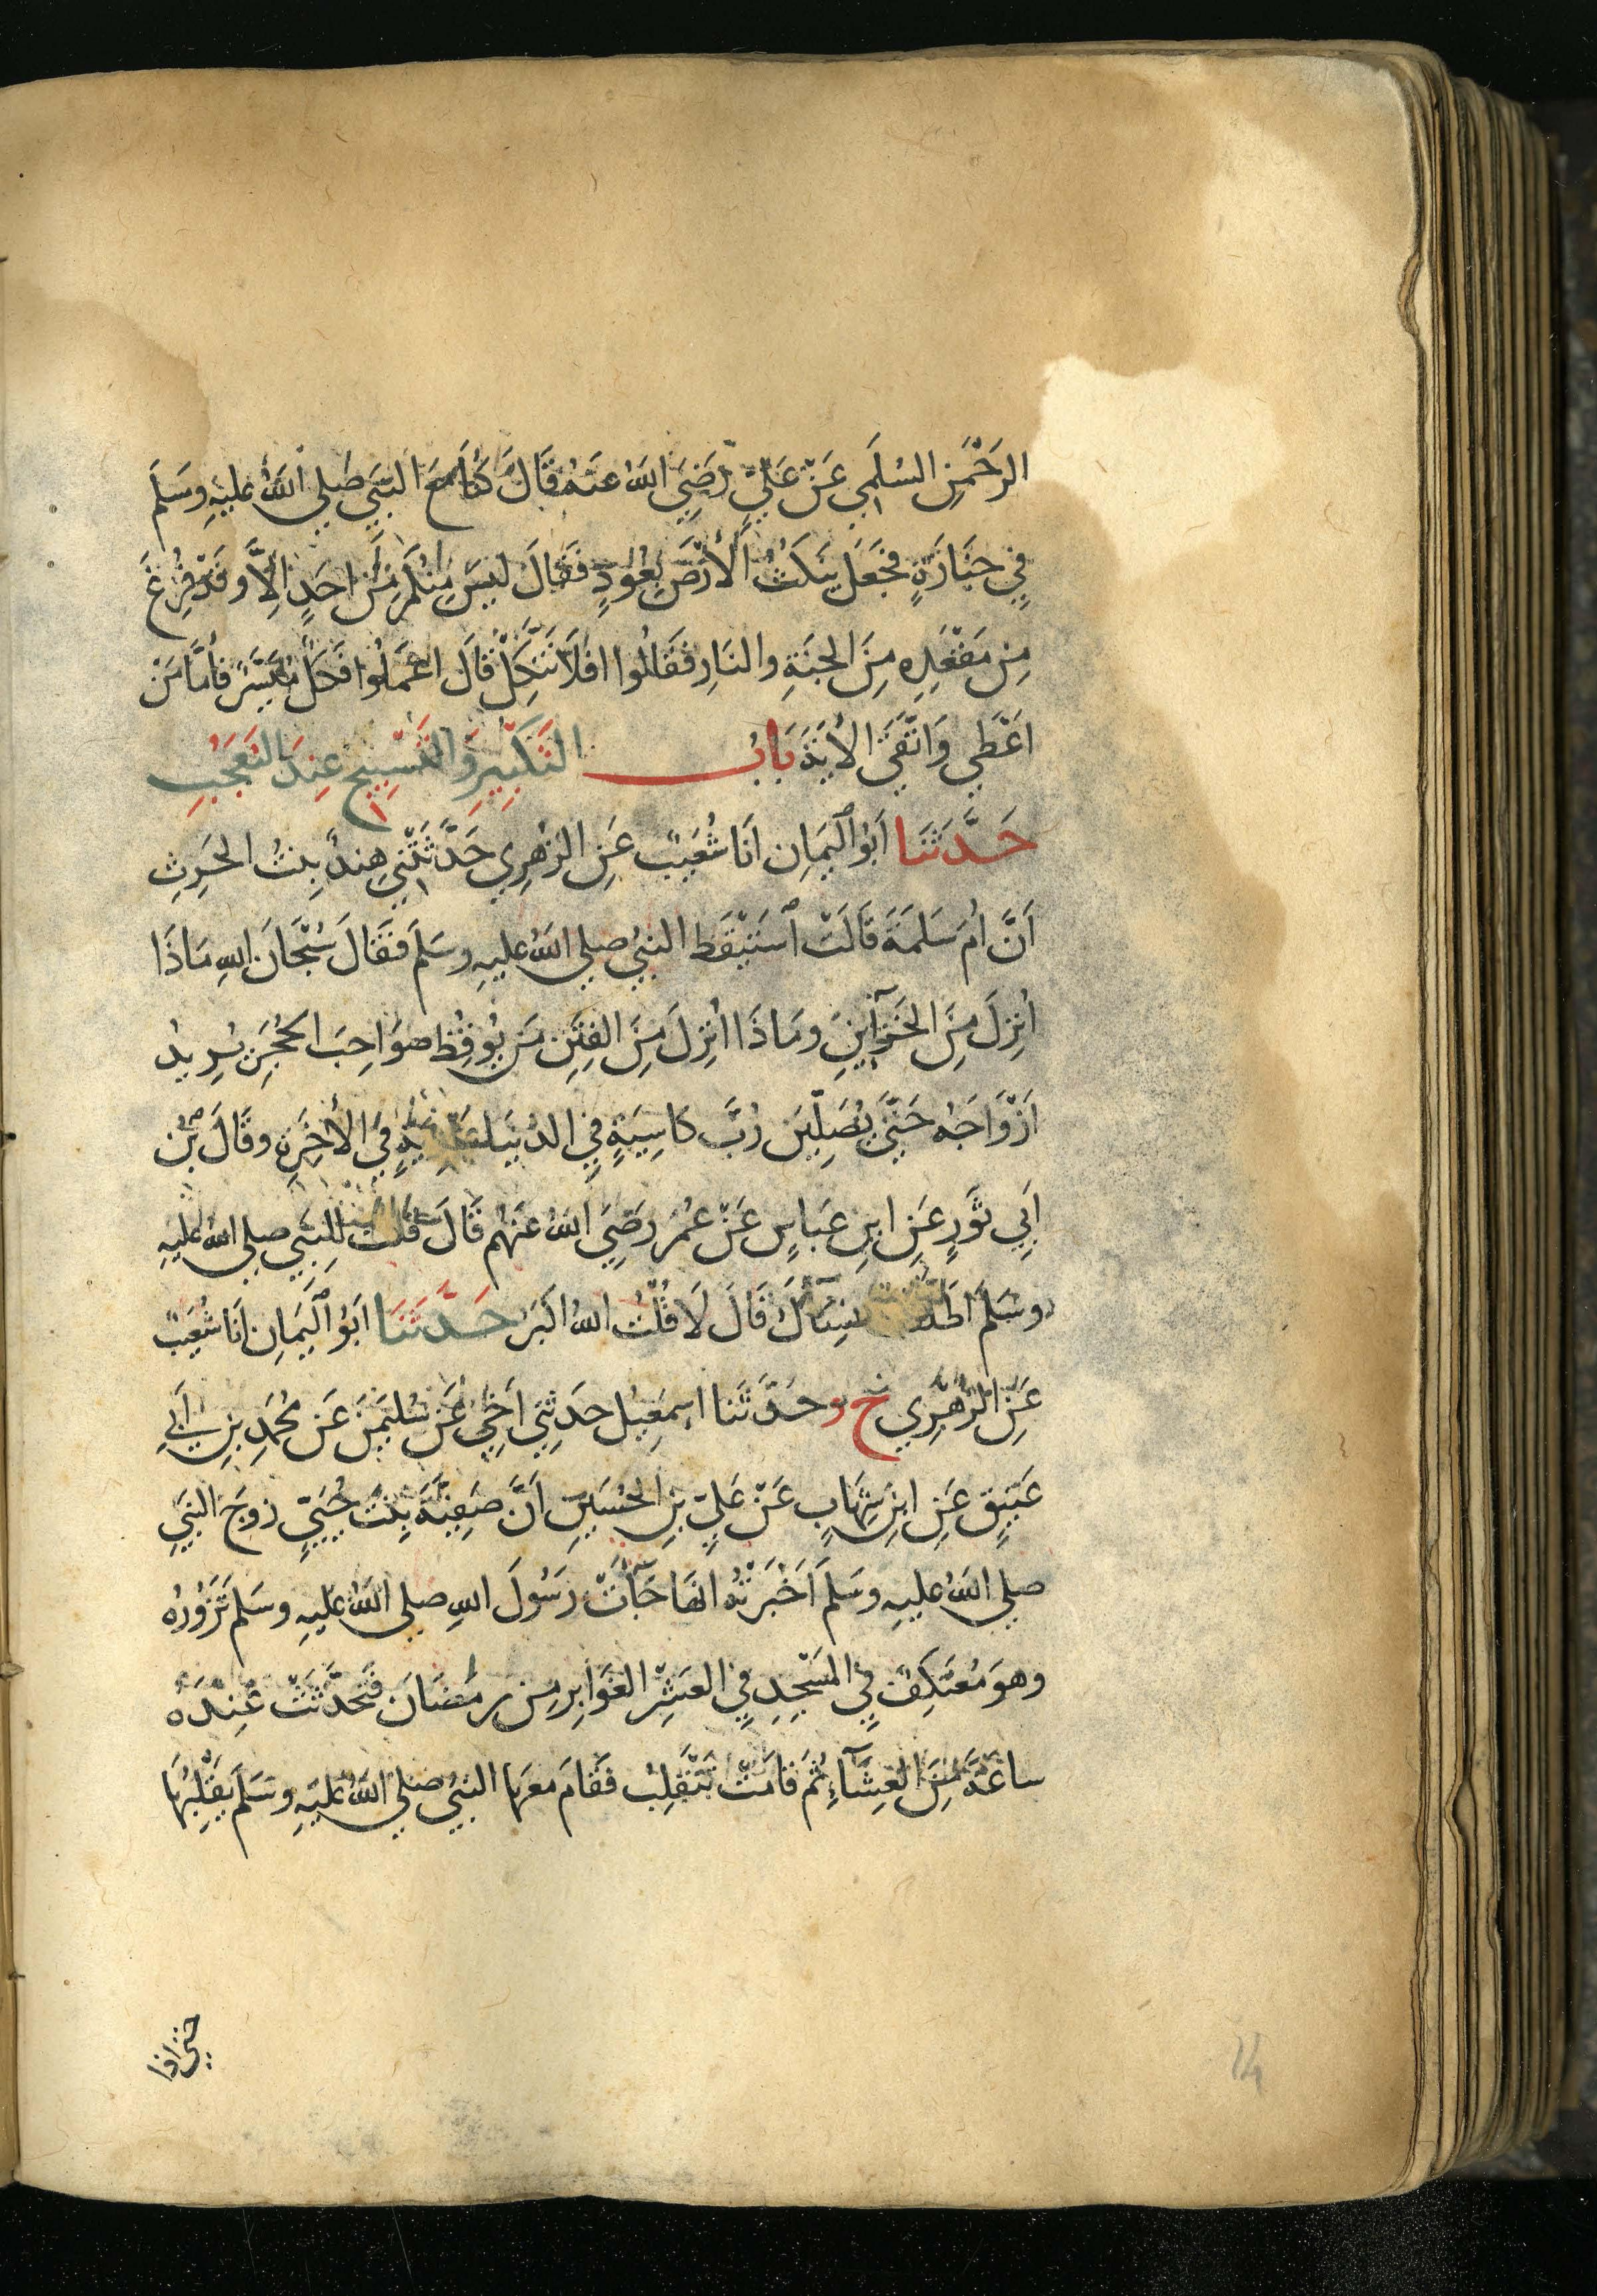 الرَحْمَنِ السُلَمِي عَنْ عَلِيٍّ رَضِيَ اللهُ عَنهُ قَالَ كُنَّا مَعَ النَبِيِّ صَلى اللهُ عليهِ وسَلمَ
فِي جنَازَةٍ فجَعَل يَنكُتُ الأرْضَ بِعُودٍ فَقَالَ ليسَ مِنكُم مِنْ احَدٍ اِلاَّ وقَدْ فُرِغَ
مِن مَقْعَدِهِ مِنَ الجنَةِ والنَارِ فَقَالُوا افَلاَ نَتَّكِلُ قَالَ اعْمَلُوا فكُلٌّ مُيَسَّرٌ فأمَّا مَنْ
اعْطَي وَاتَّقَى الأيَةَ بَابُ التَكْبِيرِ وَالتَسْبِيحِ عِندَ التَعَجُبِ
حَدَّثَنَا ابُو اليَمَانِ انَا شُعَيبٌ عَنِ الزهْرِي حَدَّثَتْنِي هِندُ بِنتُ الحَرِثِ
اَنَّ امَ سَلَمَةَ قَالَتْ اسْتَيْقَظَ النبيُ صلى اللهُ عليهِ وسَلمَ فَقَالَ سُبْحَانَ اللهِ مَاذَا
اُنزِلَ مِنَ الخَزَآينِ ومَاذَا اُنزِلَ مِنَ الفِتَنِ مَن يُوقِظُ صَوَاحِبَ الحُجَرِ يُرِيدُ
اَزْوَاجَهُ حَتَّى يُصَلِّينَ رُبَّ كاسِيَةٍ فِي الدُنيَا عَارِيَةٍ فِي الأخِرَةِ وقَالَ بْنُ
اَبِي ثَوْرٍ عَنِ ابنِ عَباسٍ عَنْ عُمَرَ رَضِيَ اللهُ عَنْهُم قَالَ قُلتُ لِلنبَيِ صلى اللهُ عليهِ
وسَلمَ اطَلَّقْتَ نِسَآءَكَ قَالَ لَا قُلْتُ اللهُ اكْبَرُ حَدَّثَنَا ابُو اليَمَانِ انَا شُعَيبٌ
عَنِ الزُهْرِي ح وحَدَّثَنَا اسمعِيل حَدثَنِي اَخِي عَنْ سُليمَنَ عَن مُحَمَدِ بنِ اَبِي
عَتِيقٍ عَنِ ابنِ شِهَابٍ عَنْ عَلِيِّ بنِ الحُسَينِ اَنَّ صَفِيَّةَ بِنتَ حُيَيٍّ زوجَ النبَيِ
صلى اللهُ عليهِ وسَلمَ اَخْبَرَتْهُ انهَا جَآتْ رَسُولَ اللهِ صلى اللهُ عليهِ وسَلمَ تَزُورُهُ
وهوَ مُعْتَكِفٌ فِي المَسْجِدِ فِي العَشْرِ الغَوَابِرِ مِن رمَضَانَ فَتَحَدَّثَتْ عِنْدَهُ
ساعَةً مِنَ العِشَآءِ ثُمَ قامَتْ تَنْقَلِبُ فَقَامَ معهَا النبيُ صلى اللهُ عليهِ وسَلمَ يَقْلِبُهَا
حتى اذا